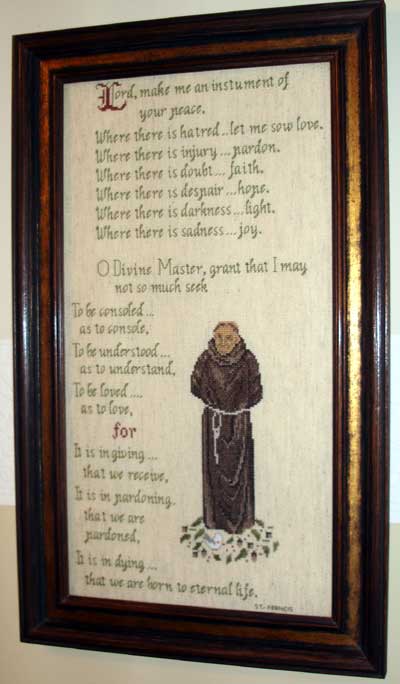 Lord, make me an instument of
your peace.
Where there is hatred...let me sow love.
Where there is injury...pardon.
Where there is doubt...faith.
Where there is despair...hope.
Where there is darkness...light.
Where there is sadness...joy.
O Divine Master, grant that I may
not so much seek
To be consoled...
as to console,
To be understood...
as to understand,
To be loved....
as to love,
for
It is in giving...
that we receive,
It is in pardoning.
that we are
pardoned,
It is in dying...
that we are born to eternal life.
ST. FRANCIS